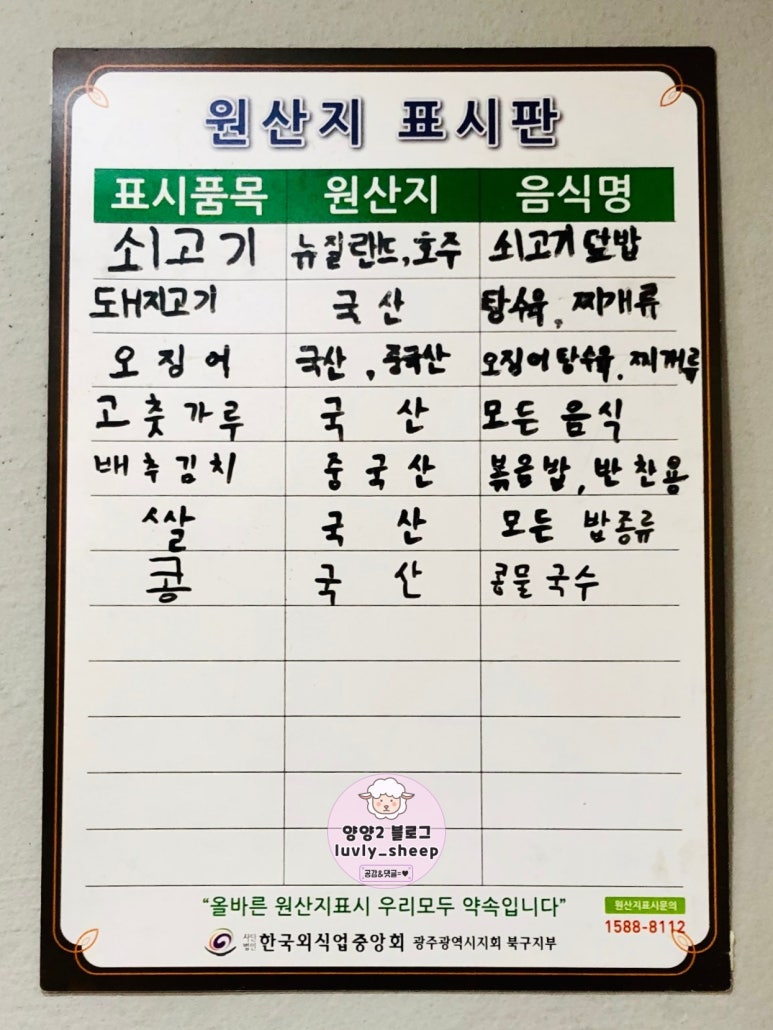 원산지 표시판
표시품목 원산지 음식명
쇠고기 뉴질랜드,호주 쇠고기덮밥
돼지고기 국산 탕수육, 찌개류
오징어 국산, 중국산 오징어탕수육, 찌개류
고춧가루 국산 모든 음식
배추김치 중국산 볶음밥, 반찬용
쌀 국산 모든 밥종류
콩 국산 콩물국수
양양2 블로그
luvly_sheep
공감&댓글=♥
“올바른 원산지표시 우리모두 약속입니다”
원산지표시문의
1588-8112
사단법인 한국외식업중앙회 광주광역시지회 북구지부